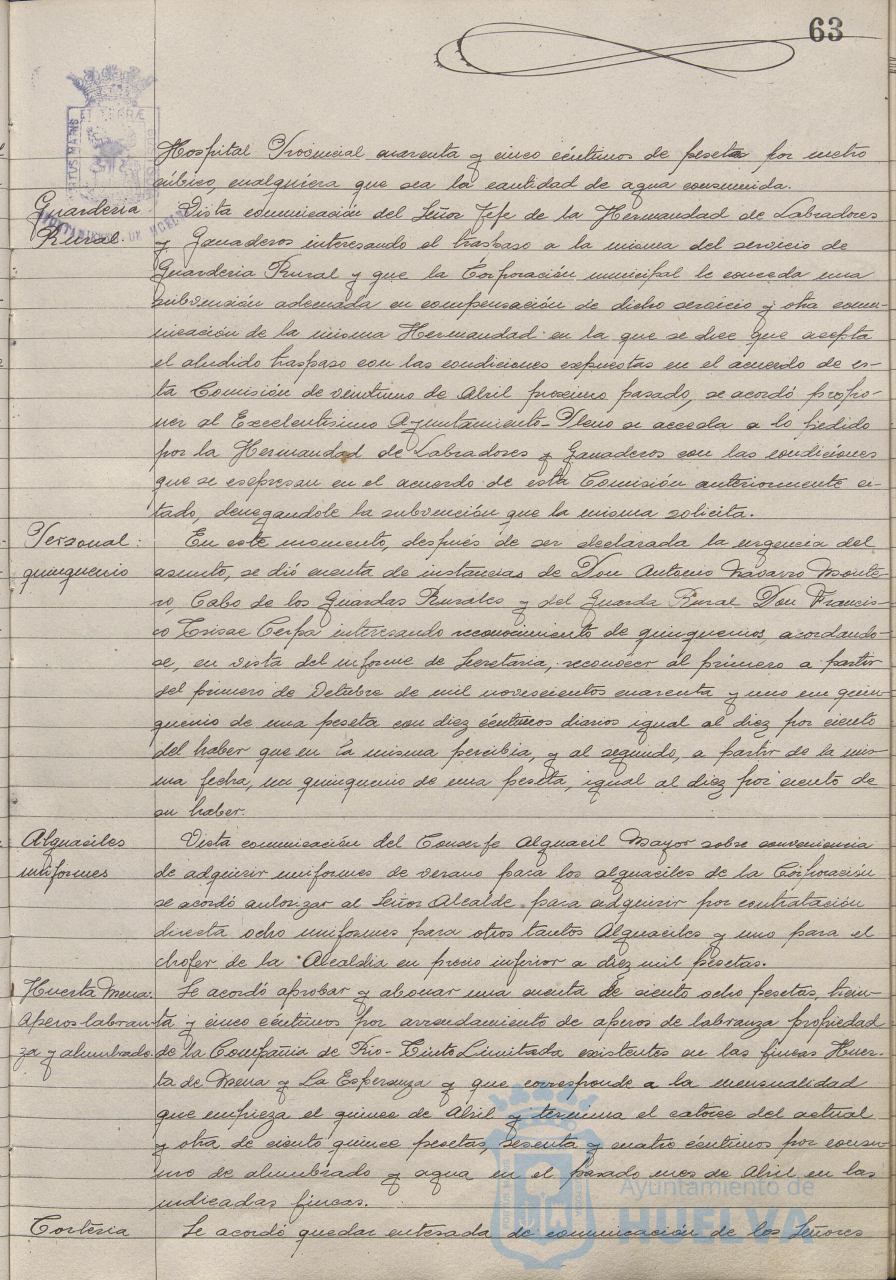 63
Hospital Provincial cuarenta y cinco céntimos de peseta por metro
cúbico, cualquiera que sea la cantidad de agua consumida.
Guarderia Rural. Vista comunicación del Señor Jefe de la Hermandad de Labradores
y Ganaderos interesando el traspaso a la misma del servicio de
Guarderia Rural y que la Corporación municipal le conceda una
subvensión adecuada en compensación de dicho servicio y otra comu-
nicación de la misma Hermandad en la que se dice que acepta
el aludido traspaso con las condiciones expuestas en el acuerdo de es-
ta Comisión de veintiuno de Abril proximo pasado, se acordó propo-
ner al Excelentísimo Ayuntamiento-Pleno se acceda a lo pedido
por la Hermandad de Labradores y Ganaderos con las condiciones
que se expresan en el acuerdo de esta Comisión anteriormente ci-
tado, denegandole la subvención que la misma solicita.
Personal: quinquenio En este momento, después de ser declarada la urgencia del
asunto, se dió cuenta de instancias de Don Antonio Navarro Monte-
ro, Cabo de los Guardas Rurales y del Guarda Rural Don Francis-
co Cerpa interesando reconocimiento de quinquenios, acordando-
se, en vista del informe de Secretaria, reconocer al primero a partir
del primero de Octubre de mil novecientos cuarenta y uno un quin-
quenio de una peseta con diez céntimos diarios igual al diez por ciento
del haber que en la misma percibia, y al segundo, a partir de la mis-
ma fecha, un quinquenio de una peseta, igual al diez por ciento de
su haber.
Alguaciles uniformes Vista comunicación del Conserje Alguacil Mayor sobre conveniencia
de adquirir uniformes de verano para los alguaciles de la Corporación
se acordó autorizar al Señor Alcalde para adquirir por contratación
directa ocho uniformes para otros tantos Alguaciles y uno para el
chofer de la Alcaldia en precio inferior a diez mil pesetas.
Huerta Mena: Se acordó aprobar y abonar una cuenta de ciento ocho pesetas, trein-
aperos labran- ta y cinco céntimos por arrendamiento de aperos de labranza propiedad
za y alumbrado. de la Compañia de Rio-Tinto Limitada existentes en las fincas Huer-
ta de Mena y La Esperanza y que corresponde a la mensualidad
que empieza el quince de Abril y termina el catorce del actual
y otra de ciento quince pesetas, sesenta y cuatro céntimos por consu-
mo de alumbrado y agua en el pasado mes de Abril en las
indicadas fincas.
Cortesia Se acordó quedar enterada de comunicación de los Señores
Ayuntamiento de
HUELVA